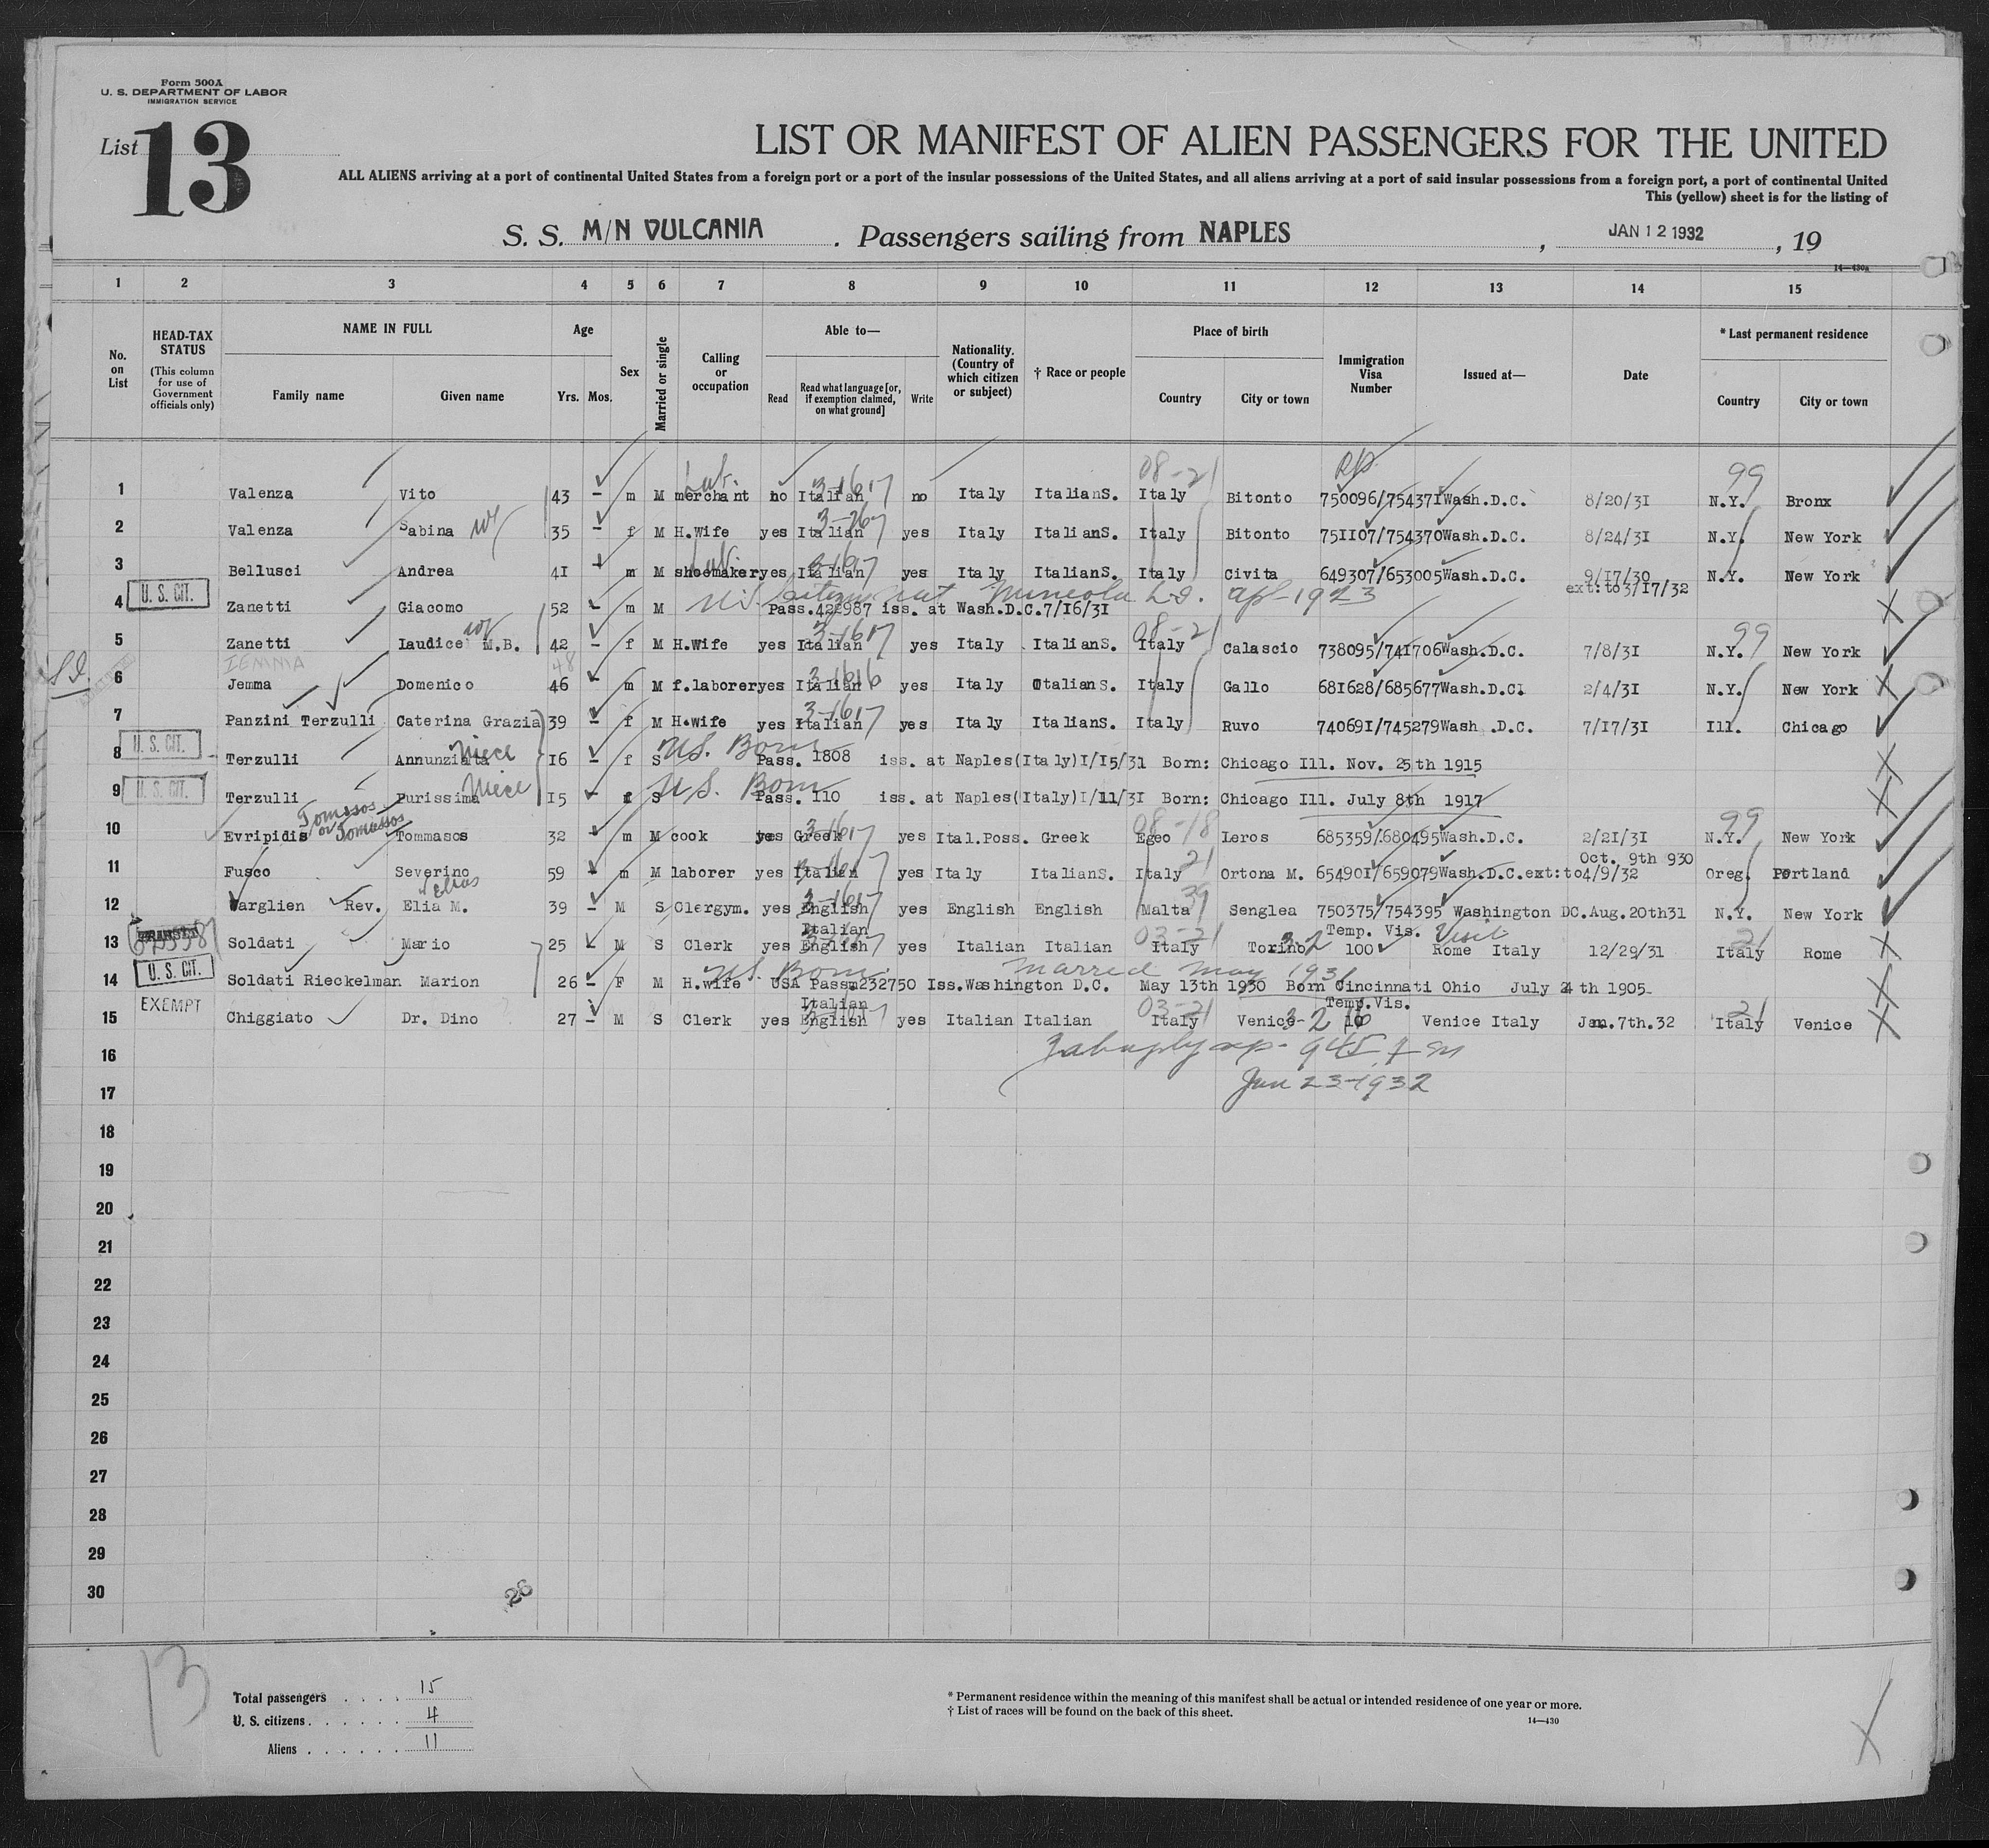 Form 500A
U. S. DEPARTMENT OF LABOR
IMMIGRATION SERVICE
List 13
LIST OR MANIFEST OF ALIEN PASSENGERS FOR THE UNITED
ALL ALIENS arriving at a port of continental United States from a foreign port or a port of the insular possessions of the United States, and all aliens arriving at a port of said insular possessions from a foreign port, a port of continental United
This (yellow) sheet is for the listing of
S. S. M/N VULCANIA . Passengers sailing from NAPLES , JAN 12 1932 , 19
14—430a
1 2 3 4 5 6 7 8 9 10 11 12 13 14 15
No. on List
HEAD-TAX STATUS (This column for use of Government officials only)
NAME IN FULL
Family name Given name
Age
Yrs. Mos.
Sex
Married or single
Calling or occupation
Able to—
Read Read what language [or, if exemption claimed, on what ground] Write
Nationality. (Country of which citizen or subject)
† Race or people
Place of birth
Country City or town
Immigration Visa Number
Issued at—
Date
* Last permanent residence
Country City or town
08-21 99
1 Valenza Vito 43 – m M merchant no Italian no Italy ItalianS. Italy Bitonto 750096/754371 Wash.D.C. 8/20/31 N.Y. Bronx
2 Valenza Sabina wf 35 – f M H.Wife yes Italian yes Italy ItalianS. Italy Bitonto 751107/754370 Wash.D.C. 8/24/31 N.Y. New York
3 Bellusci Andrea 41 m M shoemaker yes Italian yes Italy ItalianS. Italy Civita 649307/653005 Wash.D.C. 9/17/30 N.Y. New York
ext: to 3/17/32
U. S. CIT.
4 Zanetti Giacomo 52 – m M Pass.422987 iss. at Wash.D.C.7/16/31
US Citizen nat Mineola L.I. Apl-1923
5 Zanetti Iaudice M.B. wf 42 – f M H.Wife yes Italian yes Italy ItalianS. Italy Calascio 738095/741706 Wash.D.C. 7/8/31 N.Y. New York
08-21 99
IEMMA 48
S.I.
6 Jemma Domenico 46 m M f.laborer yes Italian yes Italy ItalianS. Italy Gallo 681628/685677 Wash.D.C. 2/4/31 N.Y. New York
7 Panzini Terzulli Caterina Grazia 39 – f M H.wife yes Italian yes Italy ItalianS. Italy Ruvo 740691/745279 Wash .D.C. 7/17/31 Ill. Chicago
U. S. CIT.
8 Terzulli Annunziata Niece 16 – f S U.S. Born Pass. 1808 iss. at Naples(Italy)1/15/31 Born: Chicago Ill. Nov. 25th 1915
U. S. CIT.
9 Terzulli Purissima Niece 15 – f S U.S. Born Pass. 110 iss. at Naples(Italy)1/11/31 Born: Chicago Ill. July 8th 1917
Tomasos or Tomassos 08-18 99
10 Evripidis Tommasos 32 – m M cook yes Greek yes Ital.Poss. Greek Egeo Leros 685359/680495 Wash.D.C. 2/21/31 N.Y. New York
Oct. 9th 930
11 Fusco Severino 59 m M laborer yes Italian yes Italy ItalianS. Italy Ortona M. 654901/659079 Wash.D.C. ext:to 4/9/32 Oreg. Portland
Elias
12 Varglien Rev. Elia M. 39 – M S Clergym. yes English yes English English Malta Senglea 750375/754395 Washington DC. Aug.20th31 N.Y. New York
Italian Temp. Vis. Visit
13 Soldati Mario 25 – M S Clerk yes English yes Italian Italian Italy Torino 100 Rome Italy 12/29/31 Italy Rome
U. S. CIT.
US. Born Married May 1931
14 Soldati Rieckelman Marion 26 – F M H.wife USA Passp232750 Iss.Washington D.C. May 13th 1930 Born Cincinnati Ohio July 24 th 1905
EXEMPT
Italian Temp.Vis.
15 Chiggiato Dr. Dino 27 – M S Clerk yes English yes Italian Italian Italy Venice 3-2 Venice Italy Jan.7th.32 Italy Venice
16
Jan 23-1932
17
18
19
20
21
22
23
24
25
26
27
28
29
30
26
13
Total passengers . . . . 15
U. S. citizens . . . . . . 4
Aliens . . . . . . 11
* Permanent residence within the meaning of this manifest shall be actual or intended residence of one year or more.
† List of races will be found on the back of this sheet.
14—430